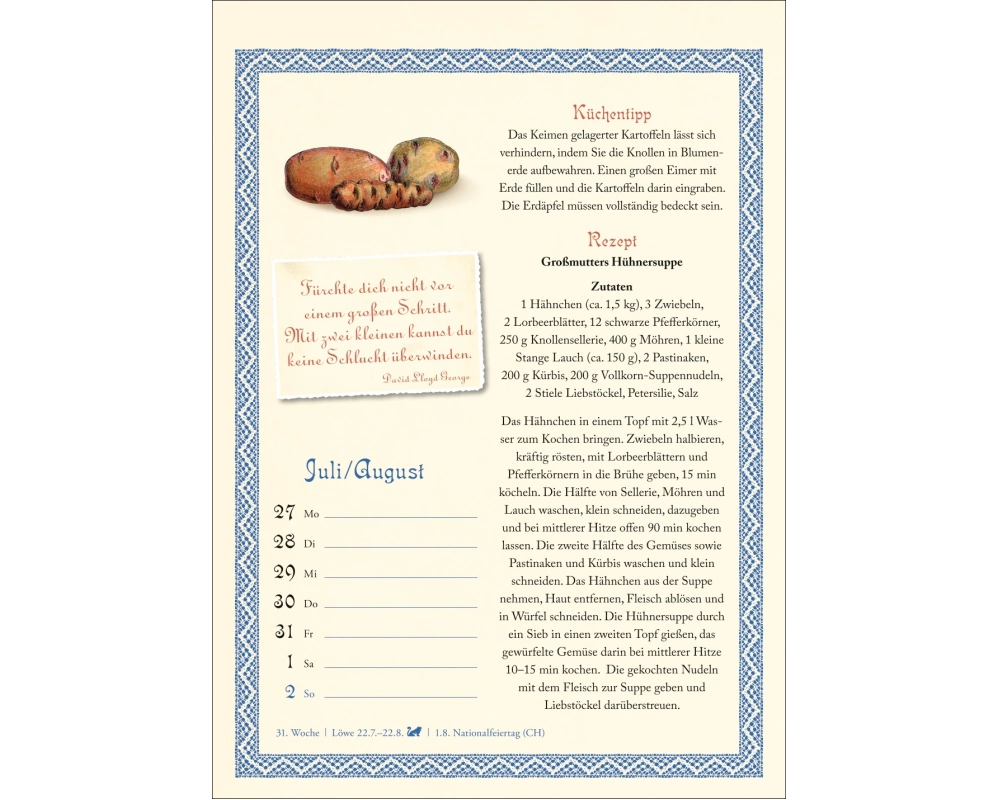 Küchentipp
Das Keimen gelagerter Kartoffeln lässt sich
verhindern, indem Sie die Knollen in Blumen-
erde aufbewahren. Einen großen Eimer mit
Erde füllen und die Kartoffeln darin eingraben.
Die Erdäpfel müssen vollständig bedeckt sein.
Rezept
Großmutters Hühnersuppe
Zutaten
1 Hähnchen (ca. 1,5 kg), 3 Zwiebeln,
2 Lorbeerblätter, 12 schwarze Pfefferkörner,
250 g Knollensellerie, 400 g Möhren, 1 kleine
Stange Lauch (ca. 150 g), 2 Pastinaken,
200 g Kürbis, 200 g Vollkorn-Suppennudeln,
2 Stiele Liebstöckel, Petersilie, Salz
Das Hähnchen in einem Topf mit 2,5 l Was-
ser zum Kochen bringen. Zwiebeln halbieren,
kräftig rösten, mit Lorbeerblättern und
Pfefferkörnern in die Brühe geben, 15 min
köcheln. Die Hälfte von Sellerie, Möhren und
Lauch waschen, klein schneiden, dazugeben
und bei mittlerer Hitze offen 90 min kochen
lassen. Die zweite Hälfte des Gemüses sowie
Pastinaken und Kürbis waschen und klein
schneiden. Das Hähnchen aus der Suppe
nehmen, Haut entfernen, Fleisch ablösen und
in Würfel schneiden. Die Hühnersuppe durch
ein Sieb in einen zweiten Topf gießen, das
gewürfelte Gemüse darin bei mittlerer Hitze
10–15 min kochen. Die gekochten Nudeln
mit dem Fleisch zur Suppe geben und
Liebstöckel darüberstreuen.
Fürchte dich nicht vor
einem großen Schritt.
Mit zwei kleinen kannst du
keine Schlucht überwinden.
David Lloyd George
Juli/August
27 Mo
28 Di
29 Mi
30 Do
31 Fr
1 Sa
2 So
31. Woche | Löwe 22.7.–22.8. | 1.8. Nationalfeiertag (CH)